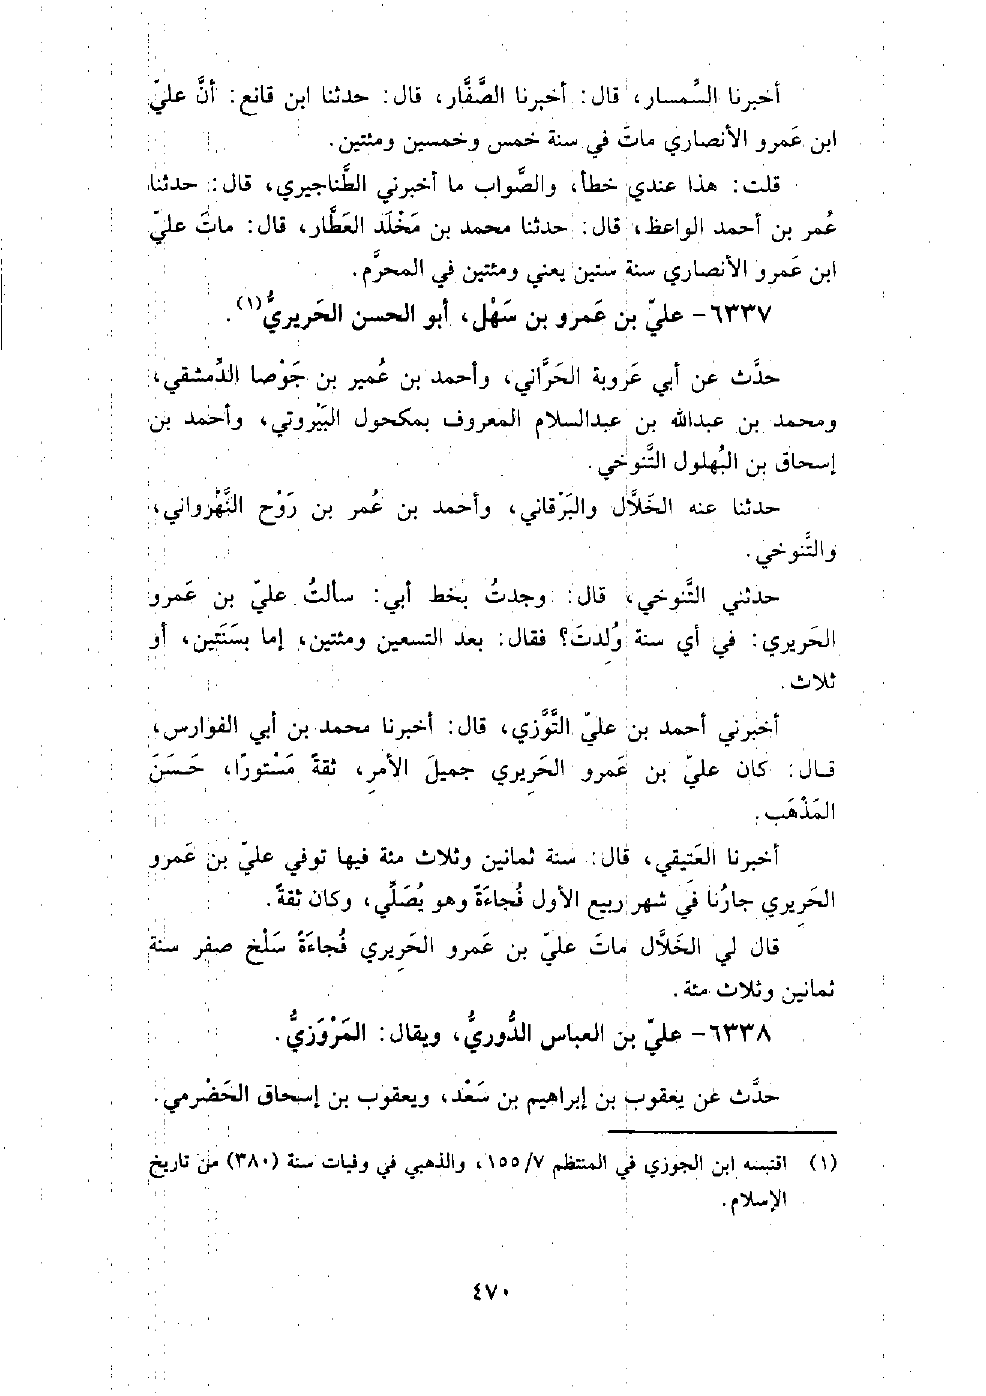 أخبرنا السِّمسار، قال: أخبرنا الصَّفَّار، قال: حدثنا ابن قانع: أنَّ عليّ
ابن عَمرو الأنصاري ماتَ في سنة خمس وخمسين ومئتين.
قلت: هذا عندي خطأ، والصَّواب ما أخبرني الطَّناجيري، قال: حدثنا
عُمر بن أحمد الواعظ، قال: حدثنا محمد بن مَخْلَد العَطَّار، قال: ماتَ عليّ
ابن عَمرو الأنصاري سنة ستين يعني ومئتين في المحرَّم.
٦٣٣٧- عليّ بن عَمرو بن سَهْل، أبو الحسن الحَريريُّ(١).
حدَّث عن أبي عَروبة الحَرَّاني، وأحمد بن عُمير بن جَوْصا الدِّمشقي،
ومحمد بن عبدالله بن عبدالسلام المعروف بمكحول البَيْروتي، وأحمد بن
إسحاق بن البُهلول التَّنوخي.
حدثنا عنه الخَلَّال والبَرْقاني، وأحمد بن عُمر بن رَوْح النَّهْرواني،
والتَّنوخي.
حدثني التَّنوخي، قال: وجدتُ بخط أبي: سألتُ عليّ بن عَمرو
الحَريري: في أي سنة وُلِدتَ؟ فقال: بعد التسعين ومئتين، إما بسَنَتين، أو
ثلاث.
أخبرني أحمد بن عليّ التَّوَّزي، قال: أخبرنا محمد بن أبي الفوارس،
قال: كان عليّ بن عَمرو الحَرِيري جميلَ الأمرِ، ثقةً مَسْتورًا، حَسَنَ
المَذْهَب.
أخبرنا العَتيقي، قال: سنة ثمانين وثلاث مئة فيها توفي عليّ بن عَمرو
الحَرِيري جارُنا في شهر ربيع الأول فُجاءَةً وهو يُصَلِّي، وكان ثقةً.
قال لي الخَلَّال ماتَ عليّ بن عَمرو الحَرِيري فُجاءَةً سَلْخ صفر سنة
ثمانين وثلاث مئة.
٦٣٣٨- عليّ بن العباس الدُّوريُّ، ويقال: المَرْوَزيُّ.
حدَّث عن يعقوب بن إبراهيم بن سَعْد، ويعقوب بن إسحاق الحَضْرمي.
(١) اقتبسه ابن الجوزي في المنتظم ٧/ ١٥٥، والذهبي في وفيات سنة (٣٨٠) من تاريخ
الإسلام.
٤٧٠